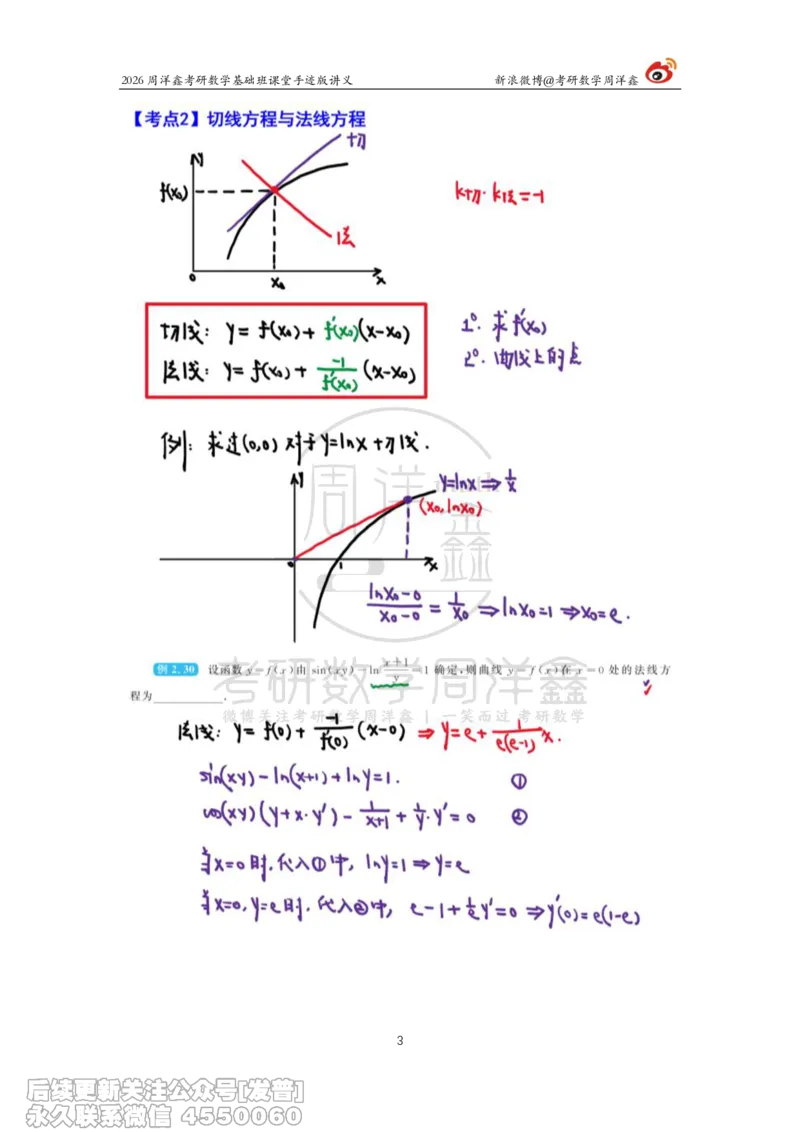 2026 周洋鑫考研数学基础班课堂手迹版讲义
新浪微博@考研数学周洋鑫
【考点2】切线方程与法线方程
y
切
f(x₀)
k切·k法=-1
法
0
x₀
x
切线: y = f(x₀) + f'(x₀)(x-x₀)
法线: y = f(x₀) + -1/f'(x₀) (x-x₀)
1°. 求f'(x₀)
2°. 曲线上的点
例: 求过(0,0)对于y=lnx切线.
y
y=lnx ⇒ 1/x
(x₀, lnx₀)
0
1
x
(lnx₀-0)/(x₀-0) = 1/x₀ ⇒ lnx₀=1 ⇒ x₀=e.
例 2.30 设函数 y=f(x)由 sin(xy)-ln (x+1)/y=1 确定,则曲线 y=f(x)在 x=0 处的法线方
程为____________.
法线: y = f(0) + -1/f'(0) (x-0) ⇒ y=e+ 1/(e(e-1)) x.
sin(xy)-ln(x+1)+lny=1. ①
cos(xy)(y+x·y')- 1/(x+1) + 1/y·y'=0 ②
当x=0时,代入①中, lny=1 ⇒ y=e
当x=0,y=e时,代入②中, e-1+ 1/e y'=0 ⇒ y'(0)=e(1-e)
周洋鑫
考研数学周洋鑫
微博关注考研数学周洋鑫 | 一笑而过 考研数学
3
后续更新关注公众号[发普]
永久联系微信 4550060